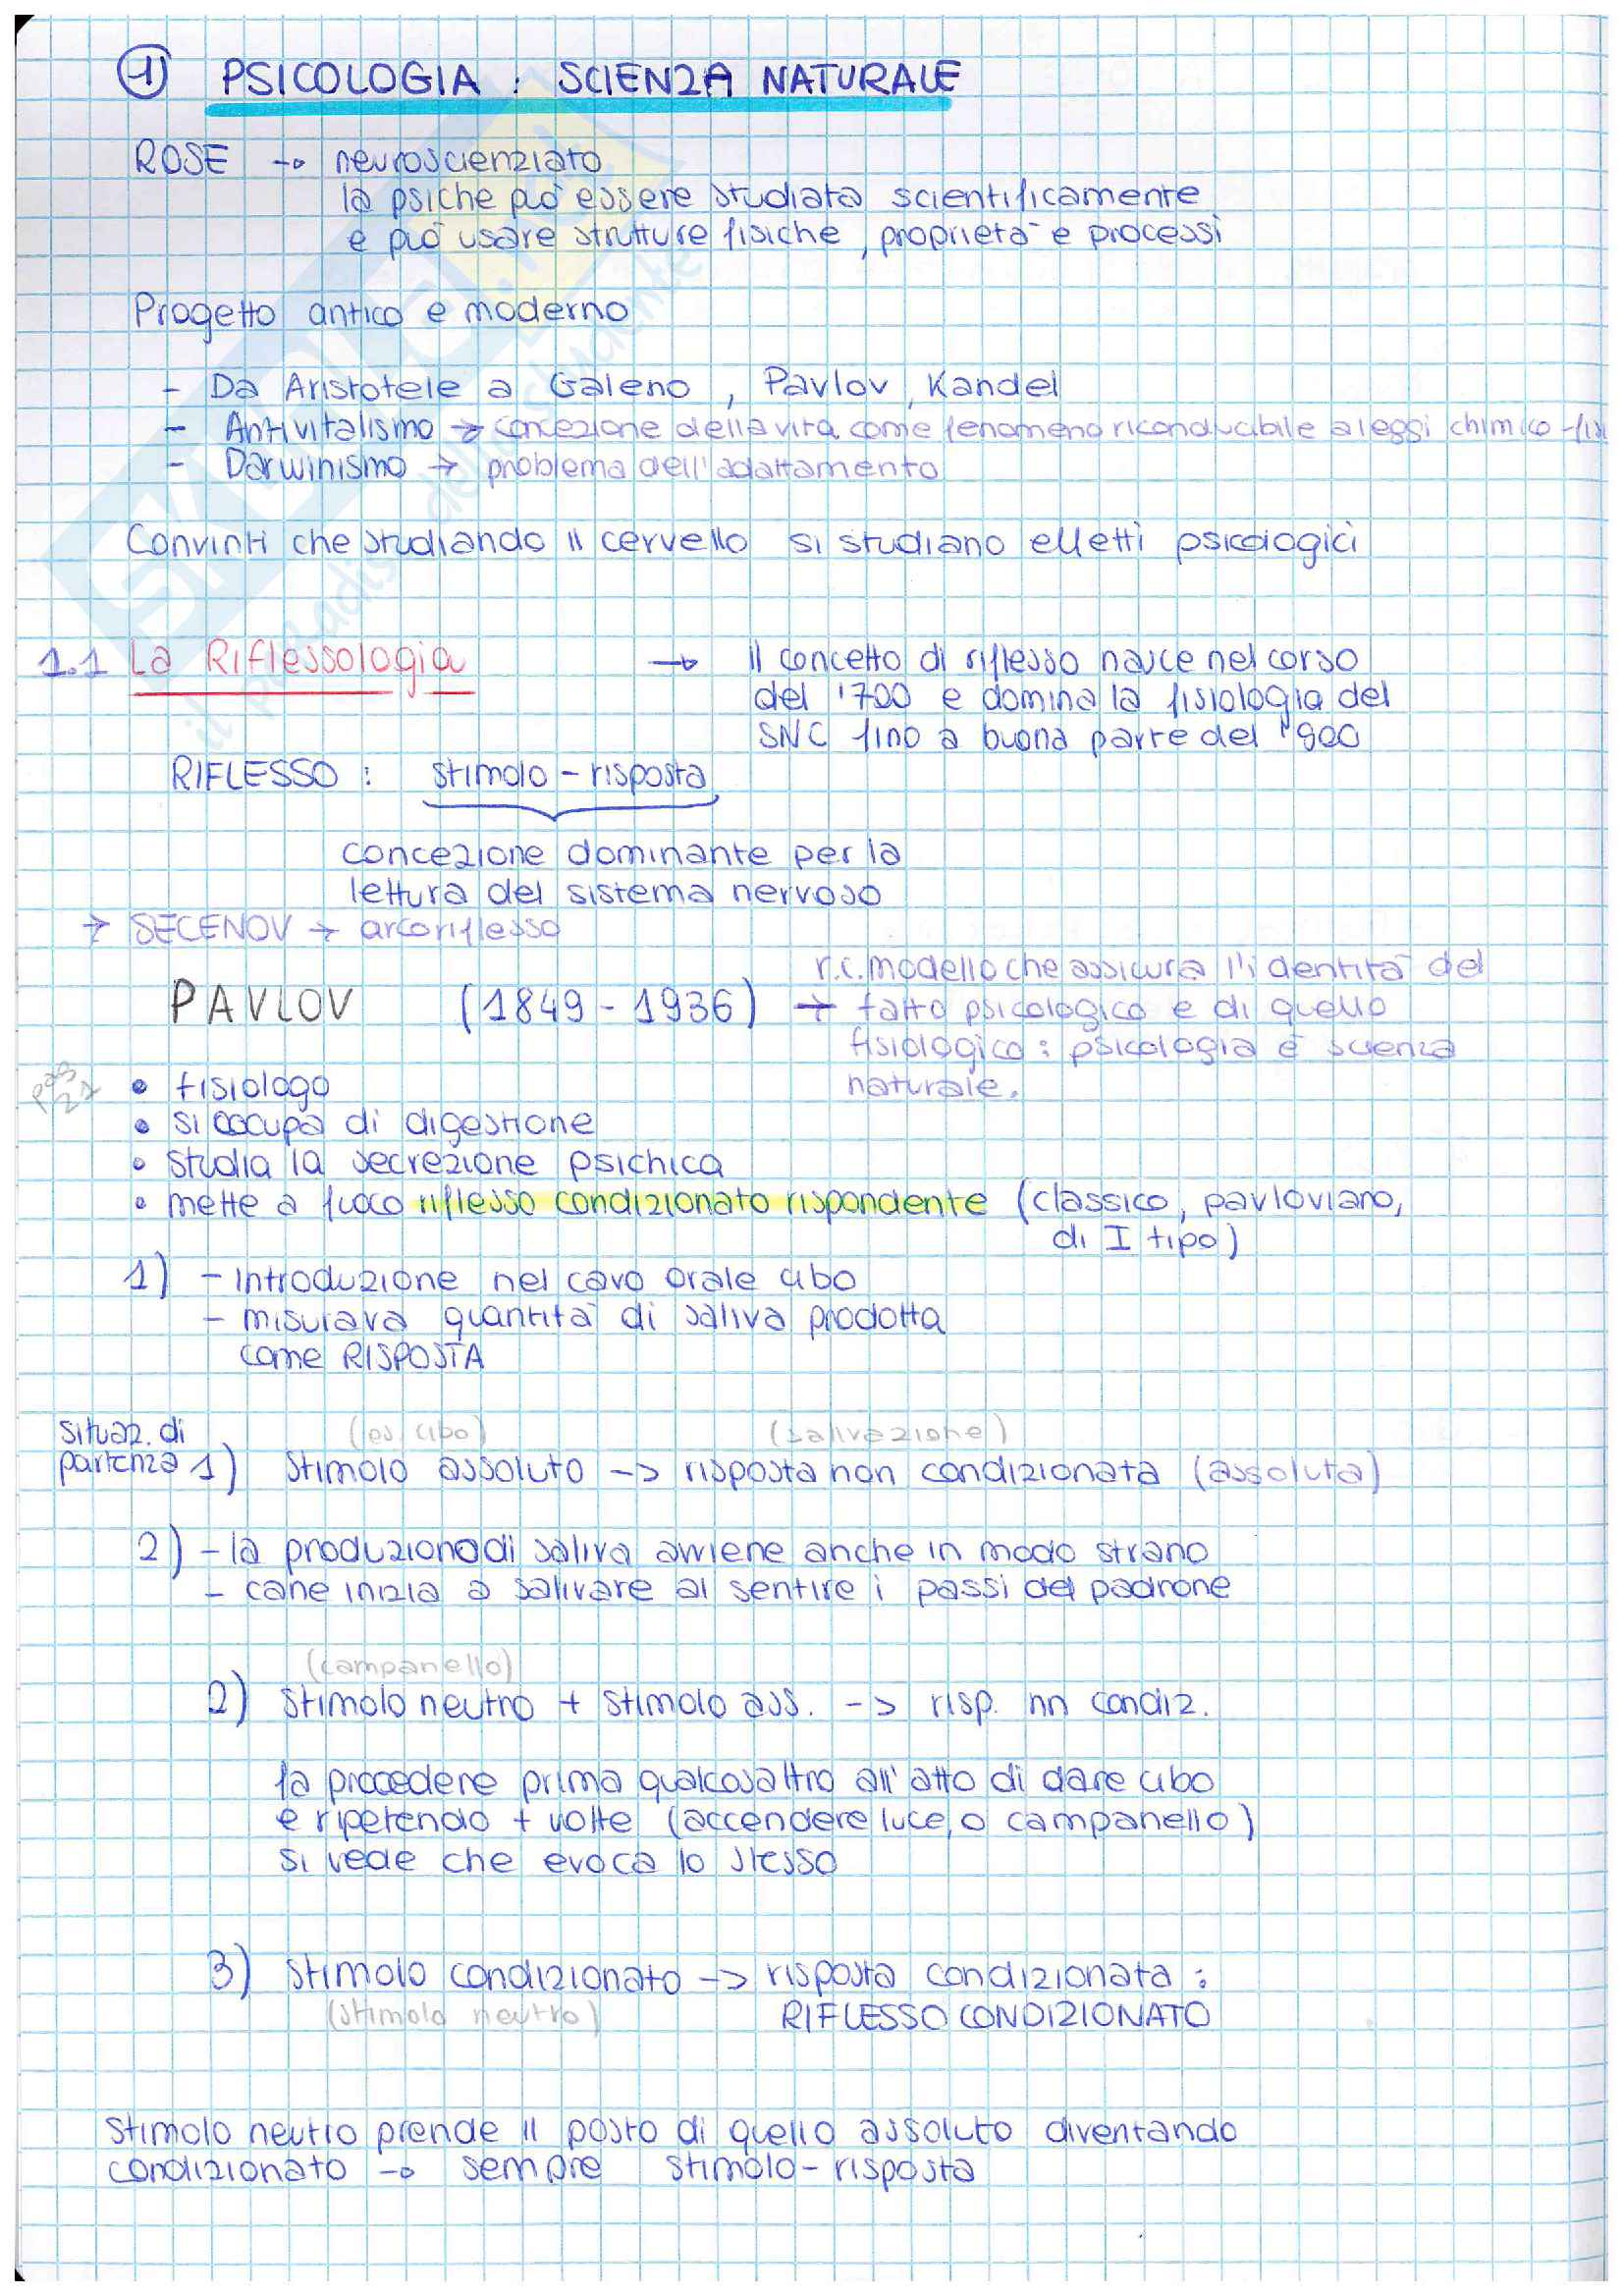 1 PSICOLOGIA : SCIENZA NATURALE
ROSE → neuroscienziato
la psiche può essere studiata scientificamente
e può usare strutture fisiche, proprietà e processi
Progetto antico e moderno
- Da Aristotele a Galeno, Pavlov, Kandel
- Antivitalismo → concezione della vita come fenomeno riconducibile a leggi chimico-fis
- Darwinismo → problema dell'adattamento
Convinti che studiando il cervello si studiano effetti psicologici
1.1 La Riflessologia → il concetto di riflesso nasce nel corso
del '700 e domina la fisiologia del
SNC fino a buona parte del '900
RIFLESSO : stimolo - risposta
concezione dominante per la
lettura del sistema nervoso
→ SECENOV → arcoriflesso
r.c. modello che assicura l'identità del
PAVLOV (1849 - 1936) → fatto psicologico e di quello
fisiologico : psicologia è scienza
naturale.
pag 21
• fisiologo
• si occupa di digestione
• studia la secrezione psichica
• mette a fuoco riflesso condizionato rispondente (classico, pavloviano,
di I tipo)
1) - introduzione nel cavo orale cibo
- misurava quantità di saliva prodotta
come RISPOSTA
situaz. di (es. cibo) (salivazione)
partenza 1) Stimolo assoluto -> risposta non condizionata (assoluta)
2) - la produzione di saliva avviene anche in modo strano
- cane inizia a salivare al sentire i passi del padrone
(campanello)
2) stimolo neutro + stimolo ass. -> risp. nn condiz.
fa procedere prima qualcosaltro all'atto di dare cibo
e ripetendo + volte (accendere luce, o campanello)
si vede che evoca lo stesso
3) stimolo condizionato -> risposta condizionata :
(stimolo neutro) RIFLESSO CONDIZIONATO
stimolo neutro prende il posto di quello assoluto diventando
condizionato → sempre stimolo - risposta